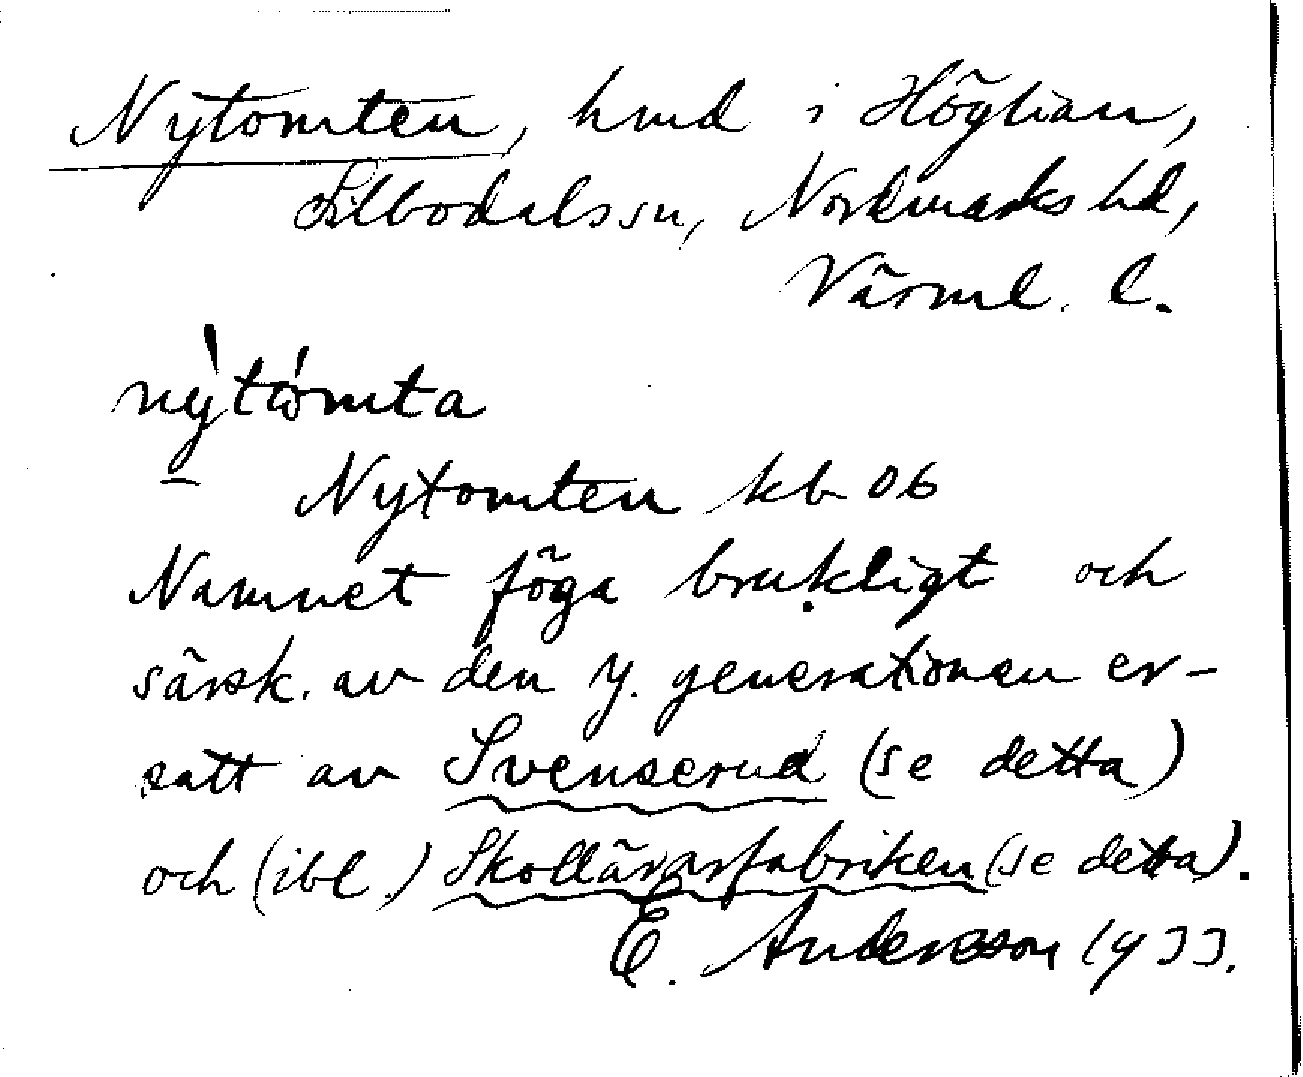 Nytomten, hmd i Höglian,
Silbodals sn, Nordmarks hd,
Värml. l.
nỳtòmta
– Nytomten kb 06
Namnet föga brukligt och
särsk. av den y. generationen er-
satt av Svenserud (se detta)
och (ibl.) Skollärarfabriken (se detta).
E. Andersson 1933.